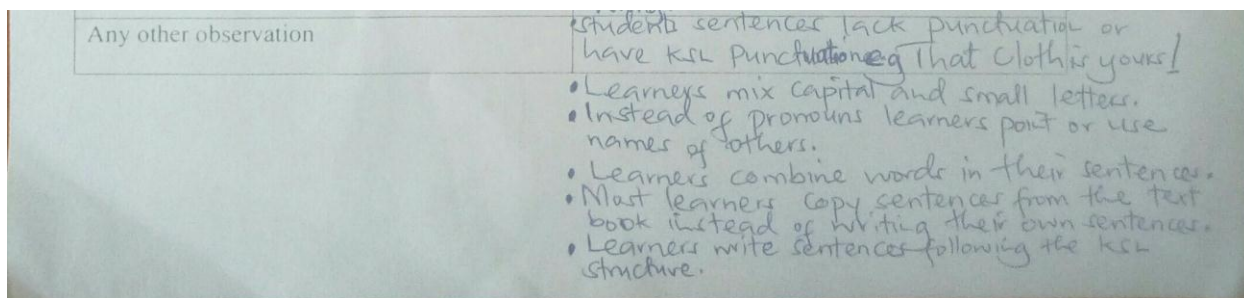 Any other observation
• students sentences lack punctuation or
have KSL Punctuation eg That Cloth is yours!
• Learners mix capital and small letters.
• Instead of pronouns learners point or use
names of others.
• Learners combine words in their sentences.
• Most learners copy sentences from the text
book instead of writing their own sentences.
• Learners write sentences following the KSL
structure.